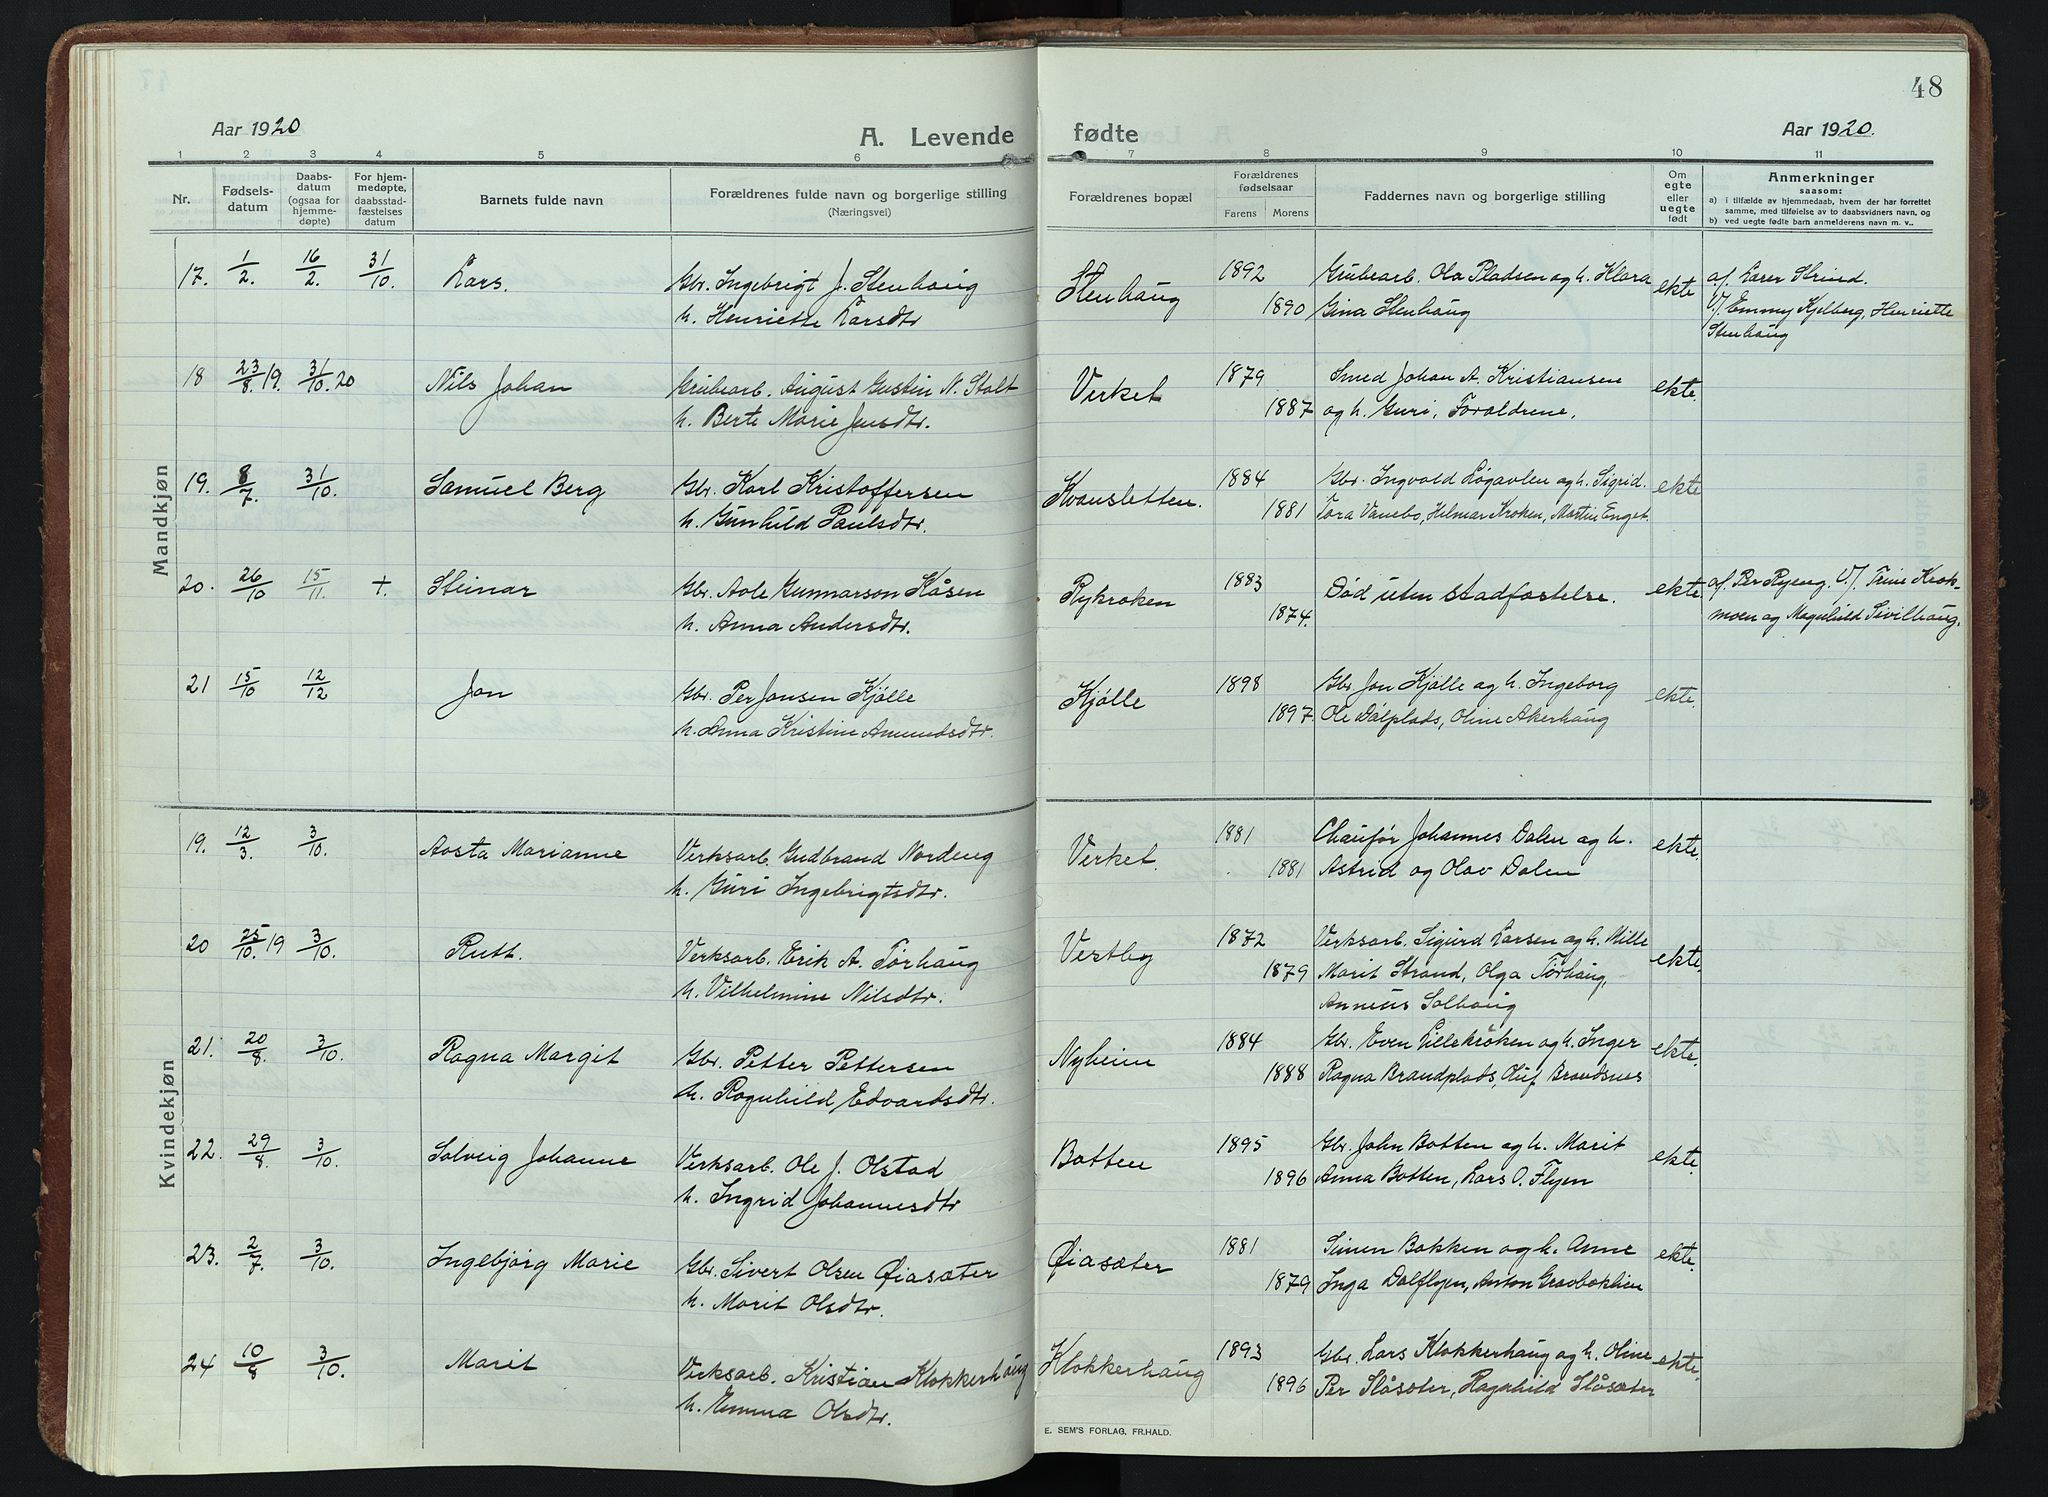 48
Aar 1920
A. Levende fødte
Aar 1920.
1 2 3 4 5 6 7 8 9 10 11
Nr.
Fødsels-
datum
Daabs-
datum
(ogsaa for
hjemme-
døpte)
For hjem-
medøpte,
daabsstad-
fæstelses
datum
Barnets fulde navn
Forældrenes fulde navn og borgerlige stilling
(Næringsvei)
Forældrenes bopæl
Forældrenes
fødselsaar
Farens Morens
Faddernes navn og borgerlige stilling
Om
egte
eller
uegte
født
Anmerkninger
saasom:
a) i tilfælde av hjemmedaab, hvem der har forrettet
samme, med tilføielse av to daabsvidners navn, og
b) ved uegte fødte barn anmelderens navn m. v..
Mandkjøn
17. 1/2. 16/2. 31/10. Lars. Gbr. Ingebrigt J. Stenhaug
h. Henriette Larsdtr
Stenhaug 1892 1890
Grubearb. Ola Pladsen og h. Klara
Gina Stenhaug
ekte
af. Lærer Strind.
V/ Emmy Kjelberg, Henriette
Stenhaug
18 23/8.19. 31/10.20 Nils Johan Grubearb. August Gustin N. Stolt
h. Berte Marie Jensdtr.
Verket 1879 1887
Smed Johan A. Kristiansen
og h. Guri, Forældrene.
ekte.
19. 8/7. 31/10. Samuel Berg Gbr. Karl Kristoffersen
h. Gunhild Paulsdtr.
Kvansletten. 1884 1881
Gbr. Ingvald Løgavlen og h. Sigrid.
Tora Vanebo, Helmar Kroken, Martin Enget.
ekte
20. 26/10 15/11. +. Steinar Gbr. Aole Gunnarson Kåsen
h. Anna Andersdtr.
Rykroken 1883 1874.
Død uten stadfæstelse.
ekte.
af. Per Ryeng. V/. Trine Krok-
moen og Magnhild Sivilhaug.
21 15/10 12/12 Jon Gbr. Per Jonsen Kjølle
h. Anna Kristine Amundsdtr.
Kjølle 1898 1897
Gbr Jon Kjølle og h. Ingeborg
Ole Dalplads, Oline Akerhaug
ekte.
Kvindekjøn
19. 12/3. 3/10. Aasta Marianne Verksarb. Gudbrand Nordeng
h. Guri Ingebrigtsdtr.
Verket. 1881 1881
Chaufør Johannes Dalen og h.
Astrid og Olav Dalen
ekte.
20 25/10.19 3/10. Rutt. Verksarb. Erik A. Tørhaug
h. Vilhelmine Nilsdtr.
Vestby 1872 1879
Verksarb. Sigurd Larsen og h. Mille
Marit Strand, Olga Tørhaug,
Annæus Solhaug
ekte.
21. 20/8. 3/10. Ragna Margit Gbr. Petter Pettersen
h. Ragnhild Edvardsdtr.
Nyheim 1884 1888
Gbr. Even Lillekroken og h. Inger
Ragna Brandplads, Oluf Brandsnes
ekte.
22. 29/8. 3/10. Solveig Johanne Verksarb. Ole J. Olstad
h. Ingrid Johannesdtr
Botten 1895 1896
Gbr. John Botten og h. Marit
Anna Botten, Lars O. Flyen
ekte.
23. 2/7. 3/10. Ingebjørg Marie Gbr. Sivert Olsen Øiasæter
h. Marit Olsdtr.
Øiasæter 1881 1879
Simen Bakken og h. Anne
Inga Dalflyen, Anton Gravbakken
ekte.
24 10/8 3/10. Marit Verksarb. Kristian Klokkerhaug
h. Emma Olsdtr.
Klokkerhaug 1893 1896
Gbr. Lars Klokkerhaug og h. Oline
Per Slåsæter, Ragnhild Slåsæter
ekte.
E. SEM'S FORLAG, FR.HALD.